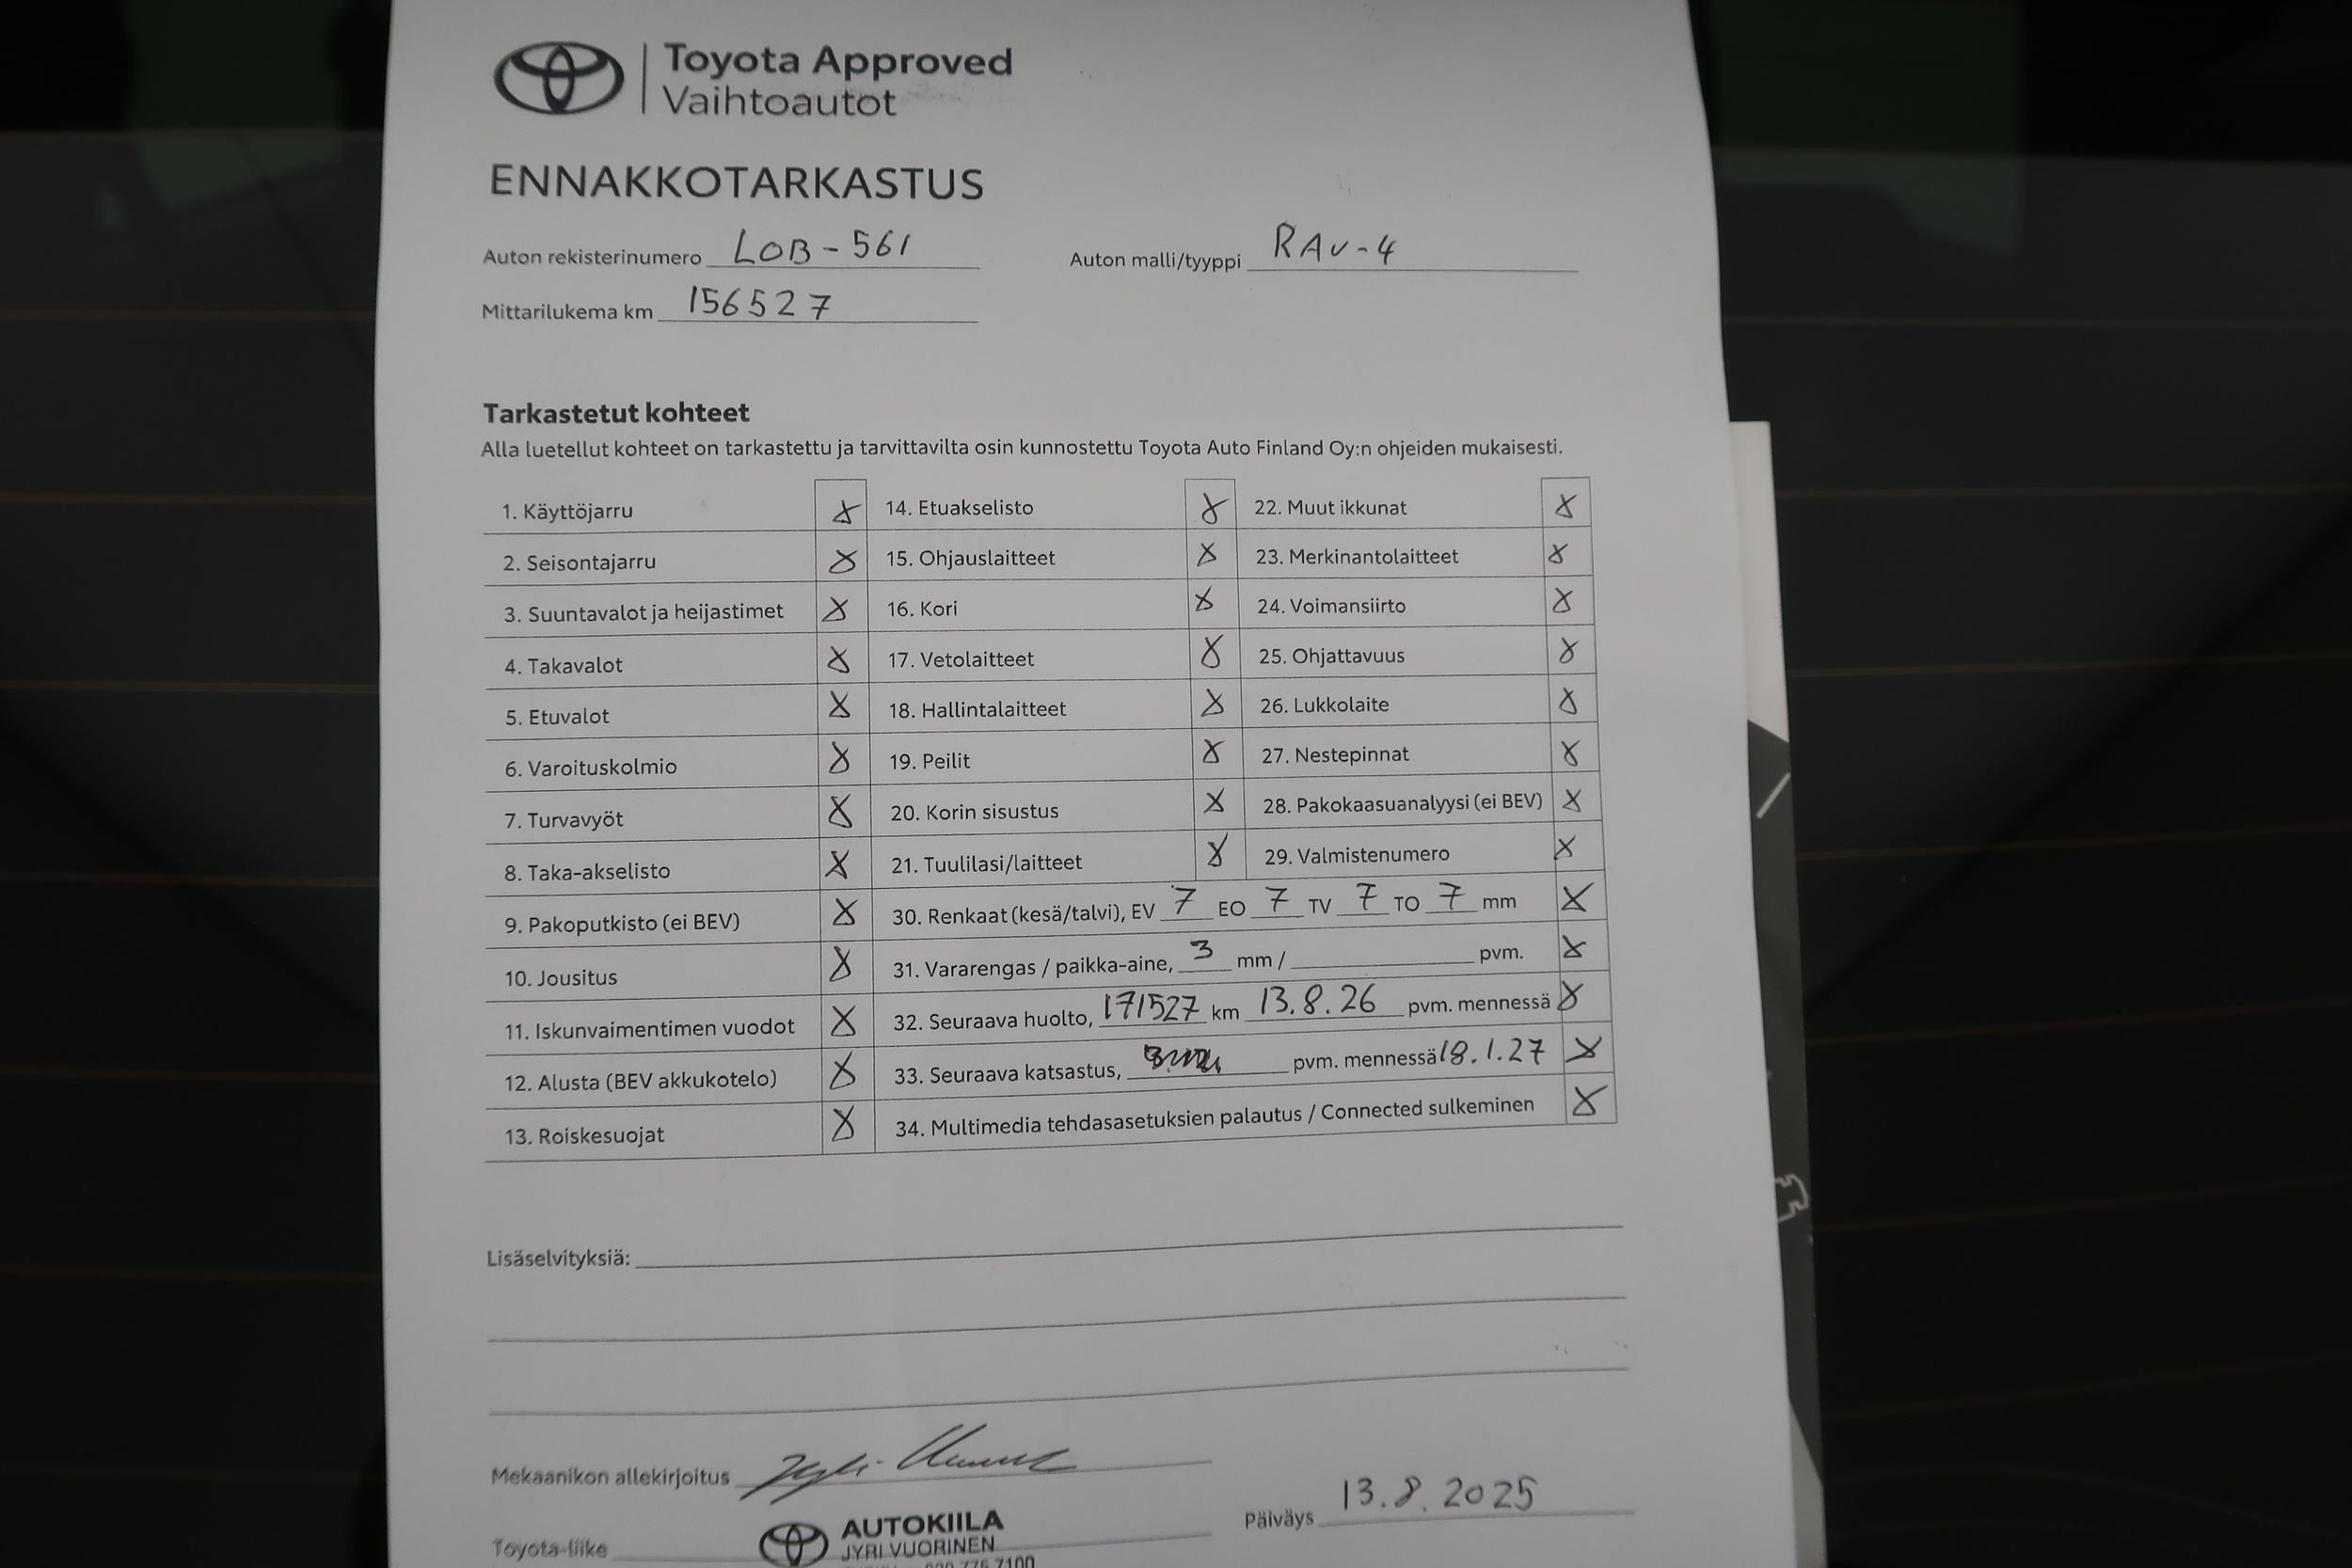 Toyota Approved
Vaihtoautot
ENNAKKOTARKASTUS
Auton rekisterinumero LOB-561 Auton malli/tyyppi RAV-4
Mittarilukema km 156527
Tarkastetut kohteet
Alla luetellut kohteet on tarkastettu ja tarvittavilta osin kunnostettu Toyota Auto Finland Oy:n ohjeiden mukaisesti.
1. Käyttöjarru X 14. Etuakselisto X 22. Muut ikkunat X
2. Seisontajarru X 15. Ohjauslaitteet X 23. Merkinantolaitteet X
3. Suuntavalot ja heijastimet X 16. Kori X 24. Voimansiirto X
4. Takavalot X 17. Vetolaitteet X 25. Ohjattavuus X
5. Etuvalot X 18. Hallintalaitteet X 26. Lukkolaite X
6. Varoituskolmio X 19. Peilit X 27. Nestepinnat X
7. Turvavyöt X 20. Korin sisustus X 28. Pakokaasuanalyysi (ei BEV) X
8. Taka-akselisto X 21. Tuulilasi/laitteet X 29. Valmistenumero X
9. Pakoputkisto (ei BEV) X 30. Renkaat (kesä/talvi), EV 7 EO 7 TV 7 TO 7 mm X
10. Jousitus X 31. Vararengas / paikka-aine, 3 mm / pvm. X
11. Iskunvaimentimen vuodot X 32. Seuraava huolto, 171527 km 13.8.26 pvm. mennessä X
12. Alusta (BEV akkukotelo) X 33. Seuraava katsastus, pvm. mennessä 18.1.27 X
13. Roiskesuojat X 34. Multimedia tehdasasetuksien palautus / Connected sulkeminen X
Lisäselvityksiä:
Mekaanikon allekirjoitus
Päiväys 13.8.2025
Toyota-liike AUTOKIILA
JYRI VUORINEN
7100